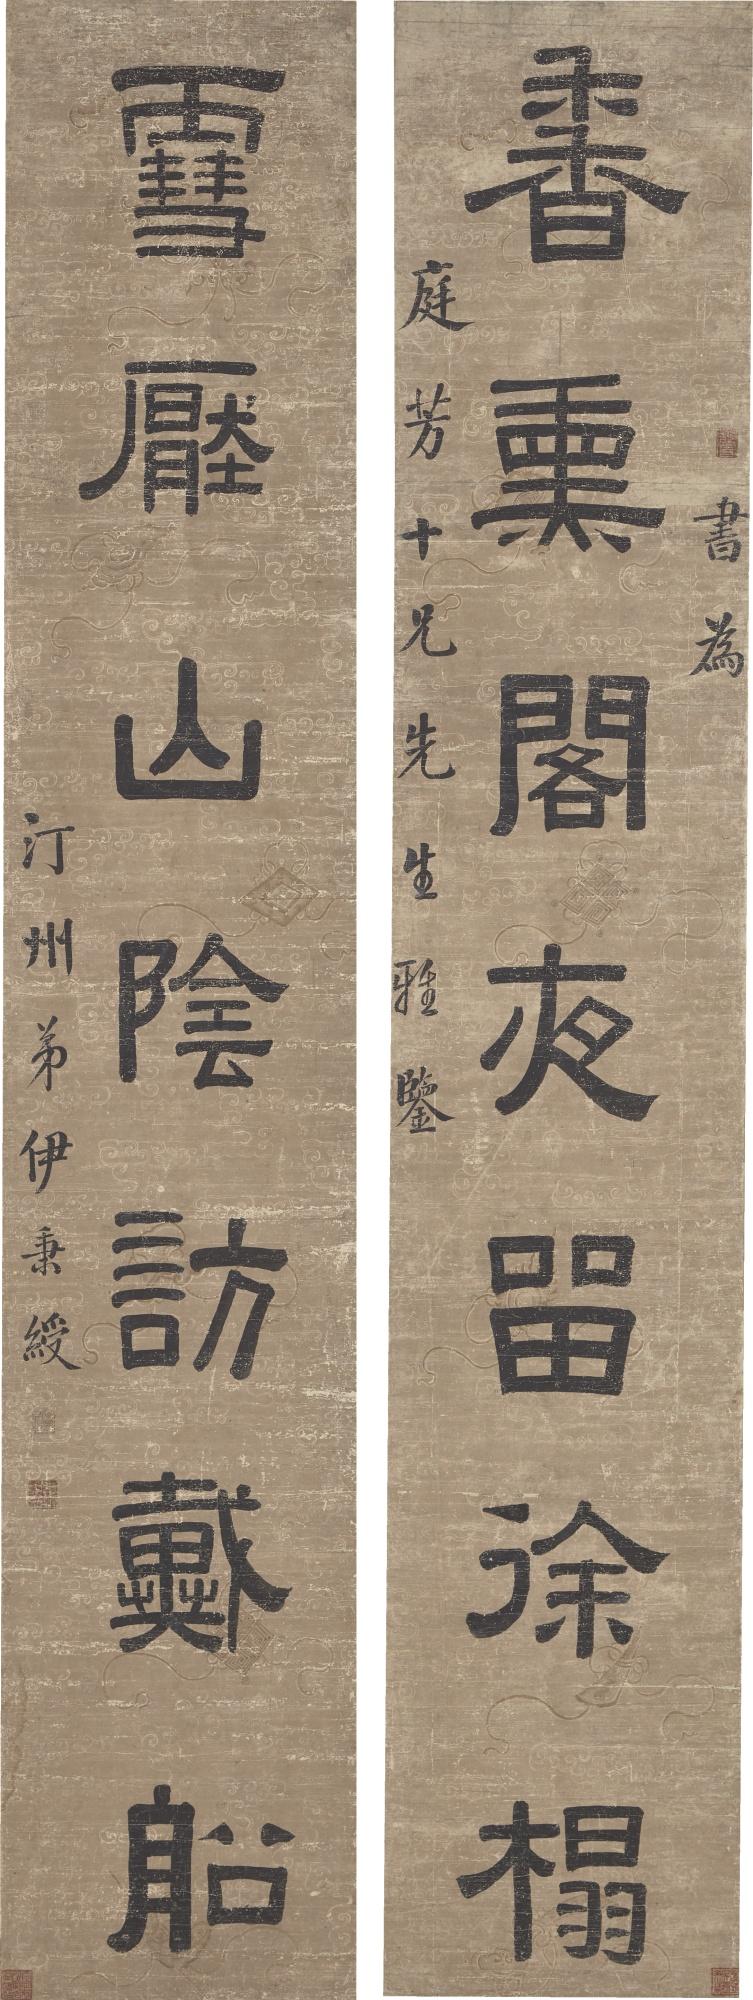 書為
香熏閣夜留徐榻
庭芳十兄先生雅鑒
雪壓山陰訪戴船
汀州弟伊秉綬